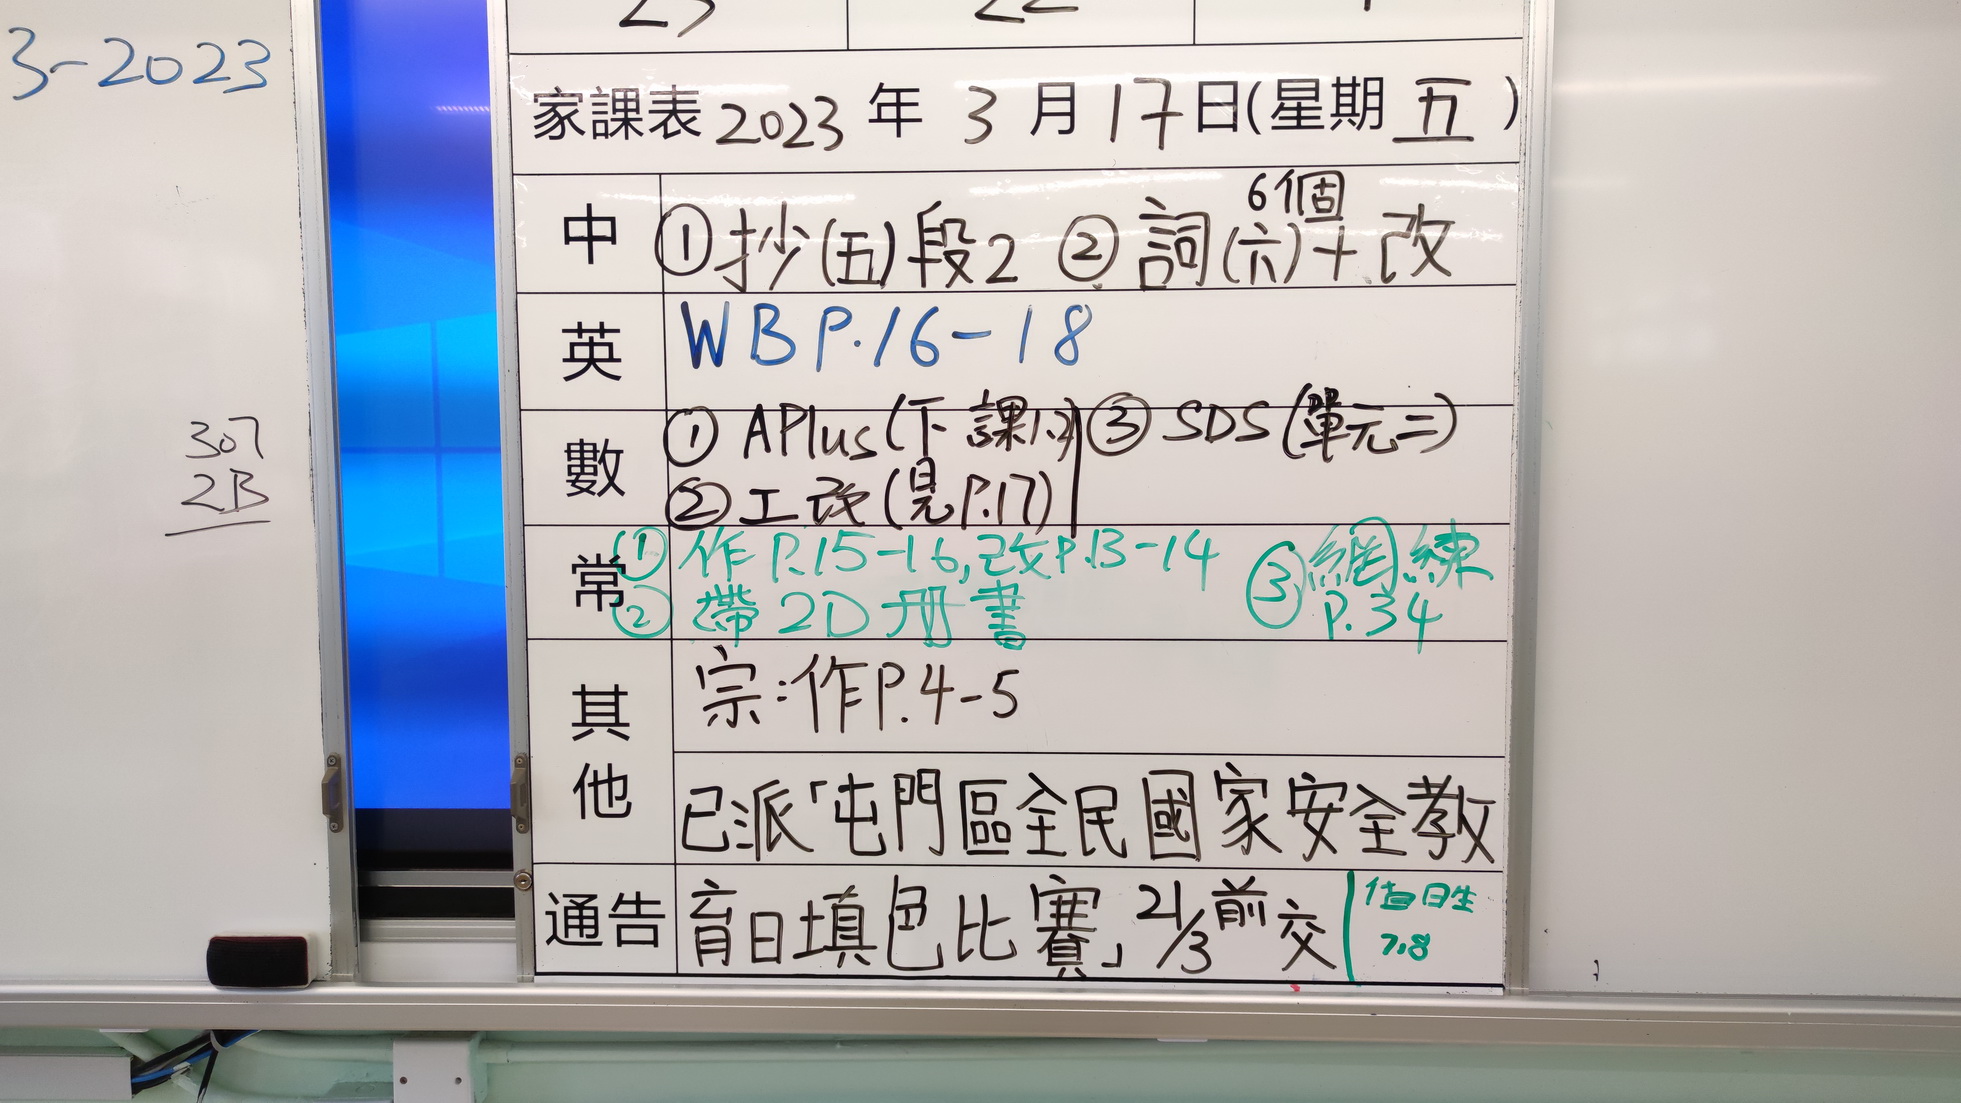 3-2023
307
2B
家課表 2023 年 3 月 17 日(星期 五 )
中 ①抄(五)段2 ②詞(六)6個+改
英 WB P.16-18
數 ① APlus(下課1,2) ③ SDS(單元二)
② 工改(見P.17)
常 ① 作P.15-16,改P.13-14 ③ 網練 P.34
② 帶2D冊書
其他 宗:作P.4-5
已派「屯門區全民國家安全教
通告 育日填色比賽」21/3前交 值日生 7,8